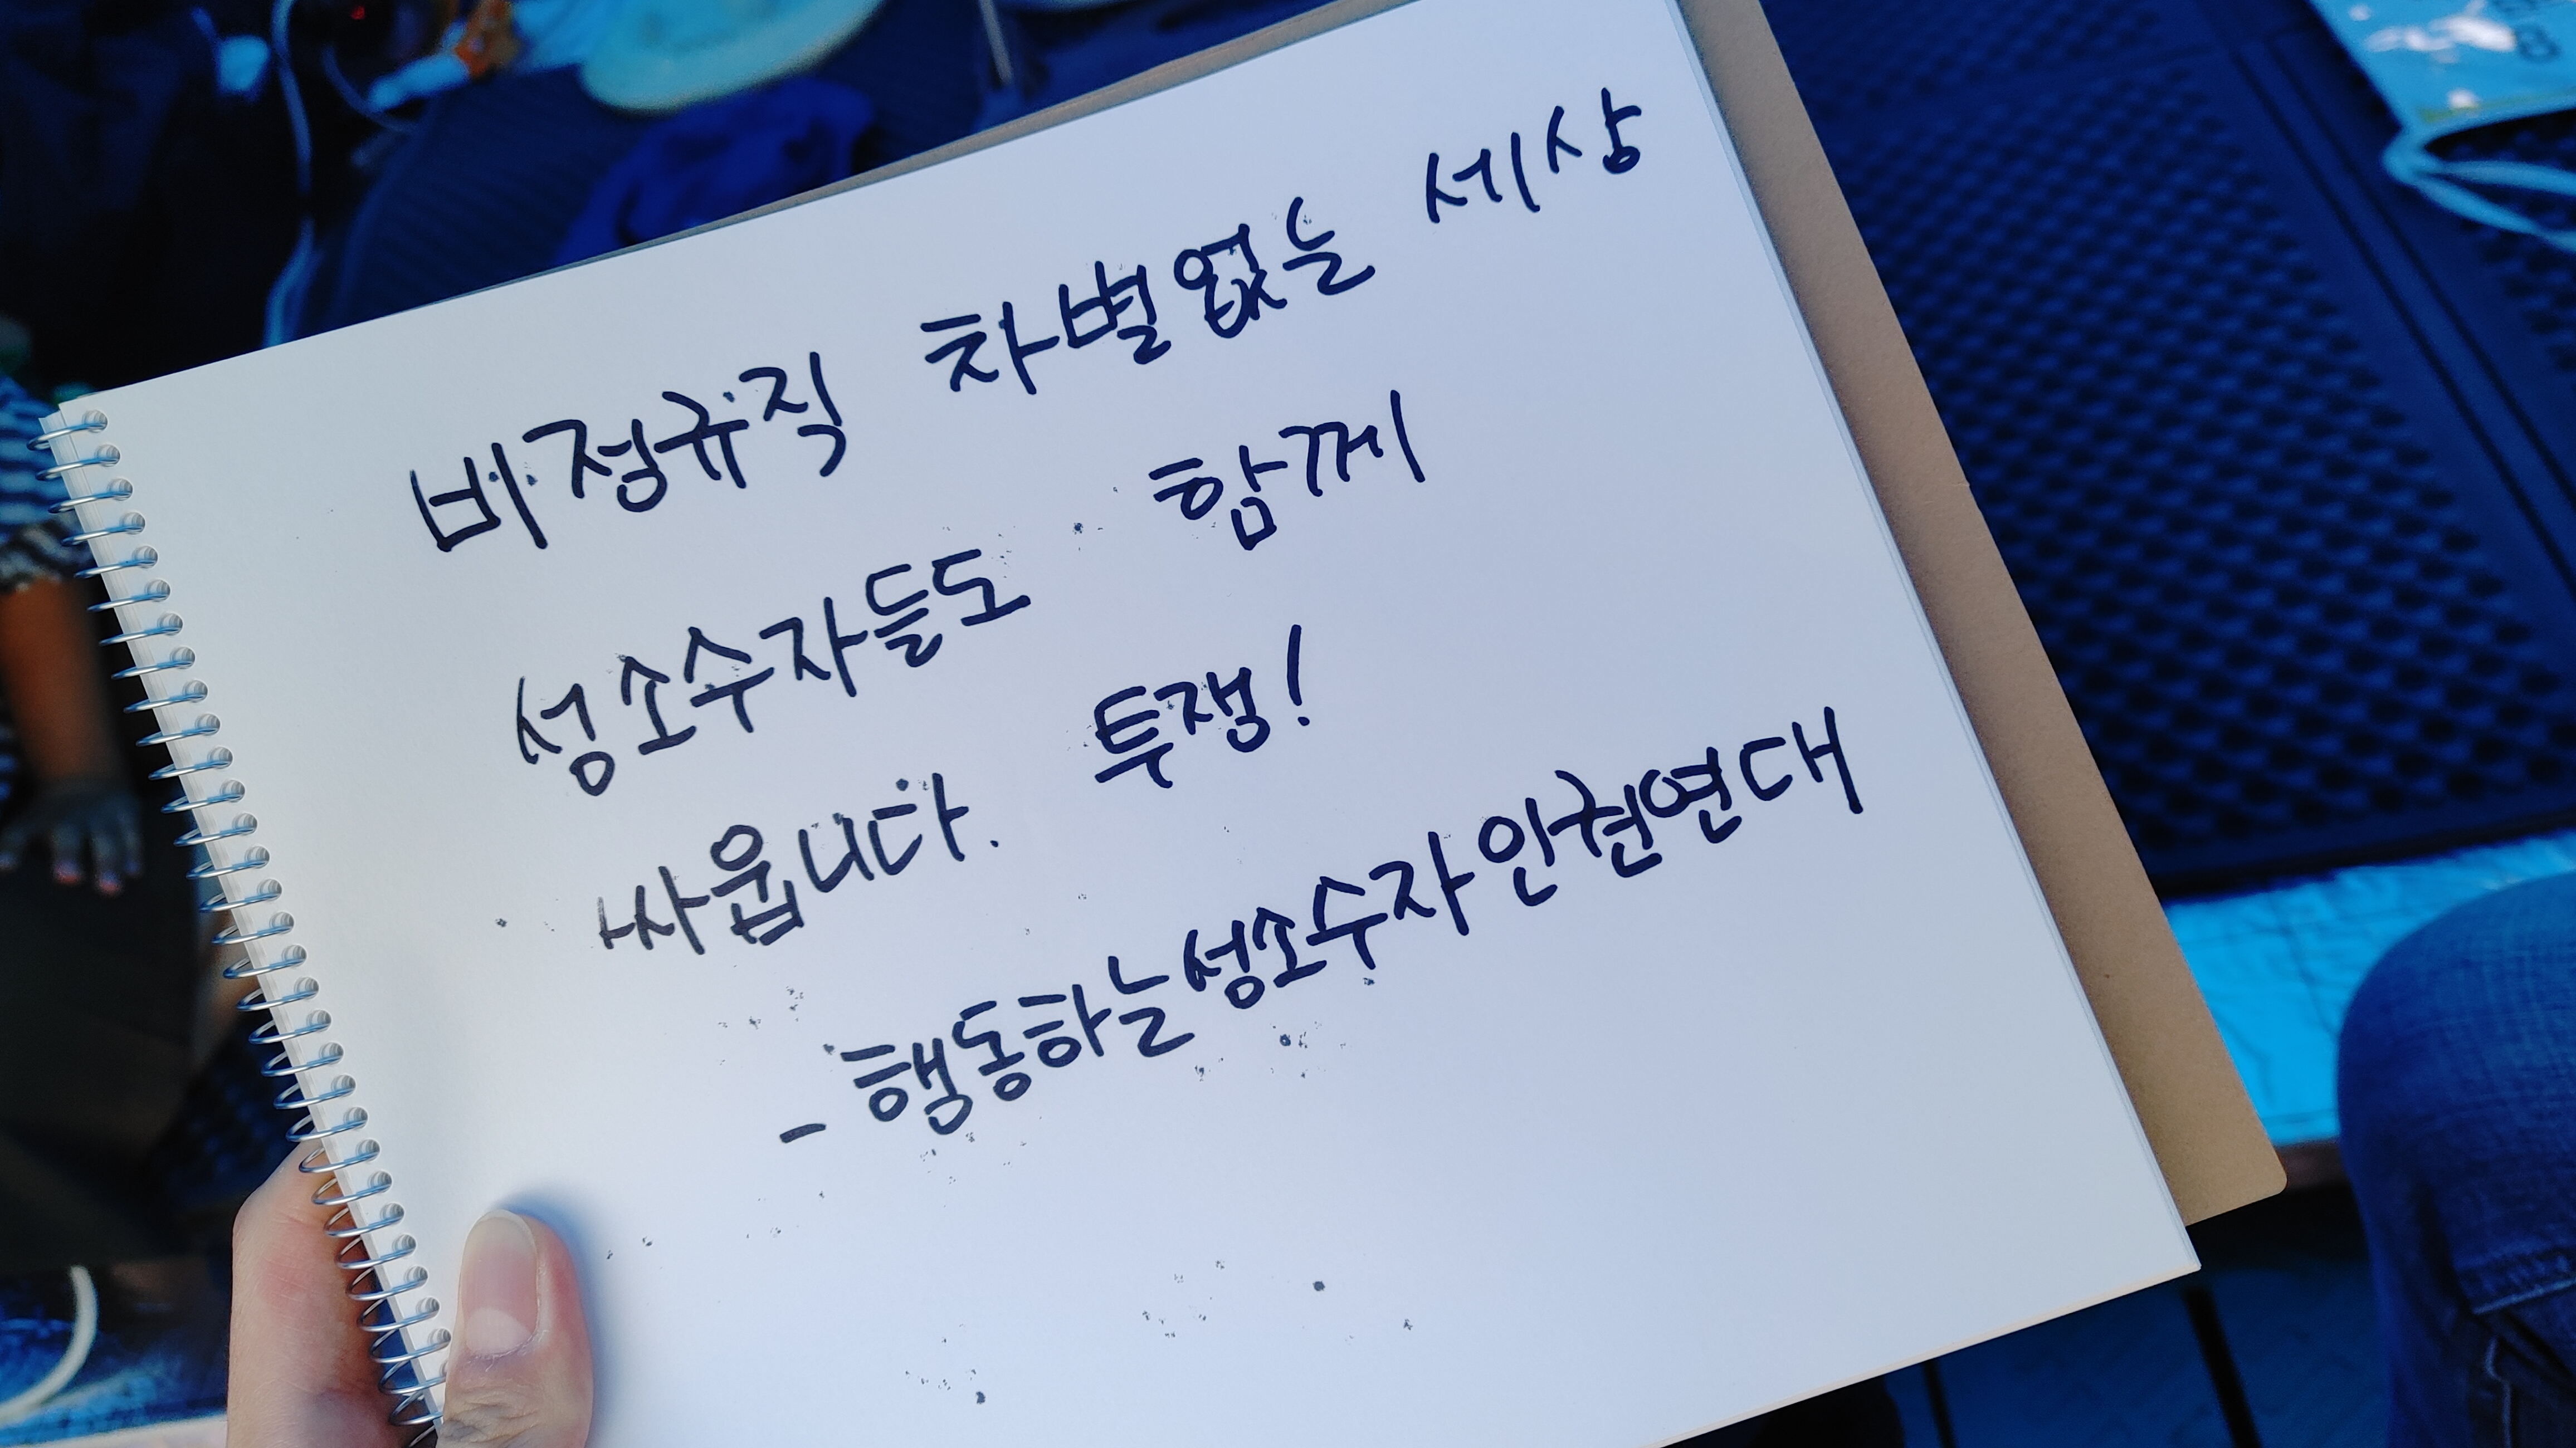 비정규직 차별없는 세상
성소수자들도 함께
싸웁니다. 투쟁!
- 행동하는성소수자인권연대